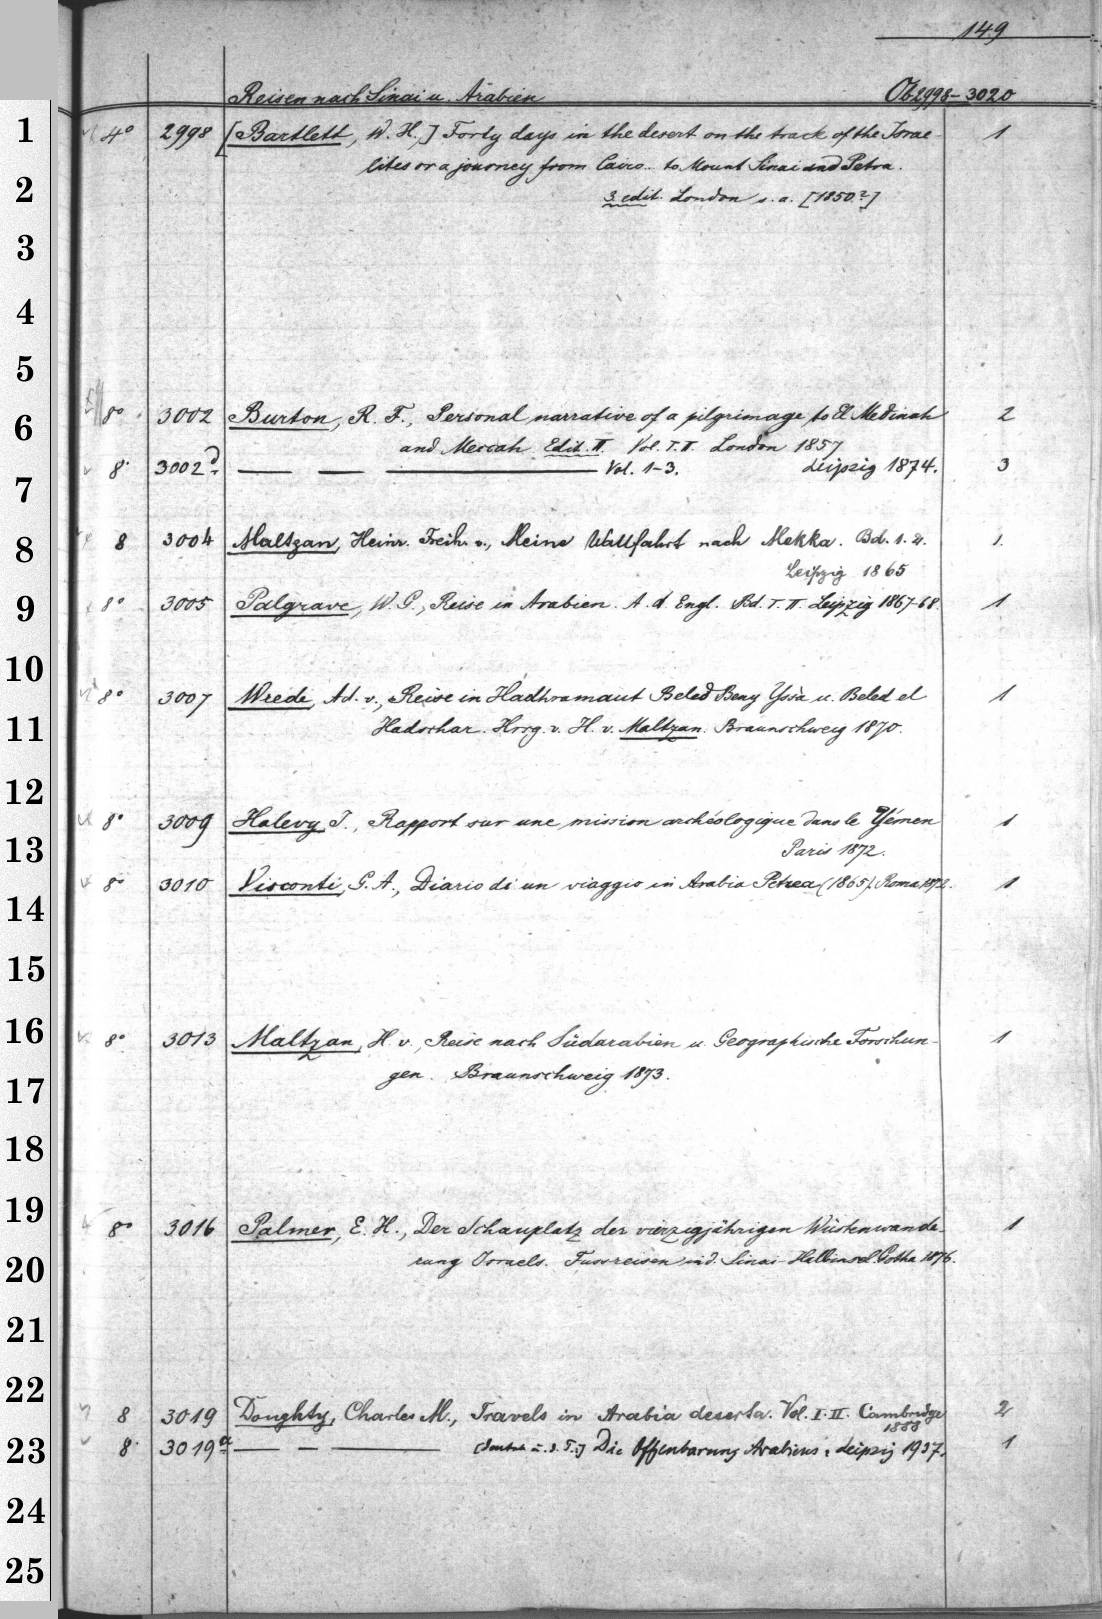 149
Reisen nach Sinai u. Arabien Ob 2998-3020
1 4° 2998 [Bartlett, W. H.,] Forty days in the desert on the track of the Israe- 1
lites or a journey from Cairo .. to Mount Sinai and Petra.
2 3. edit. London s. a. [1850?]
3
4
5
6 8° 3002 Burton, R. F., Personal narrative of a pilgrimage to El Medinah 2
and Meccah Edit. II. Vol. I. II. London 1857
7 8° 3002 — — — Vol. 1-3. Leipzig 1874. 3
8 8 3004 Maltzan, Heinr. Freih. v., Meine Wallfahrt nach Mekka. Bd. 1. 2. 1.
Leipzig 1865
9 8° 3005 Palgrave, W. G., Reise in Arabien. A. d. Engl. Bd. I. II. Leipzig 1867-68. 1
10
8° 3007 Wrede, Ad. v., Reise in Hadhramaut Beled Beny Yssa u. Beled el 1
11 Hadschar. Hrsg. v. H. v. Maltzan. Braunschweig 1870.
12
8° 3009 Halevy, J., Rapport sur une mission archéologique dans le Yémen 1
13 Paris 1872.
14 8° 3010 Visconti, G. A., Diario di un viaggio in Arabia Petrea (1865). Roma 1872. 1
15
16 8° 3013 Maltzan, H. v., Reise nach Südarabien u. Geographische Forschun- 1
17 gen. Braunschweig 1873.
18
19 8° 3016 Palmer, E. H., Der Schauplatz der vierzigjährigen Wüstenwande- 1
20 rung Israels. Fussreisen in d. Sinai-Halbinsel. Gotha 1876.
21
22
8 3019 Doughty, Charles M., Travels in Arabia deserta. Vol. I. II. Cambridge 2
1888
23 8° 3019a — — — [Deutsch u. d. T.:] Die Offenbarung Arabiens. Leipzig 1937. 1
24
25